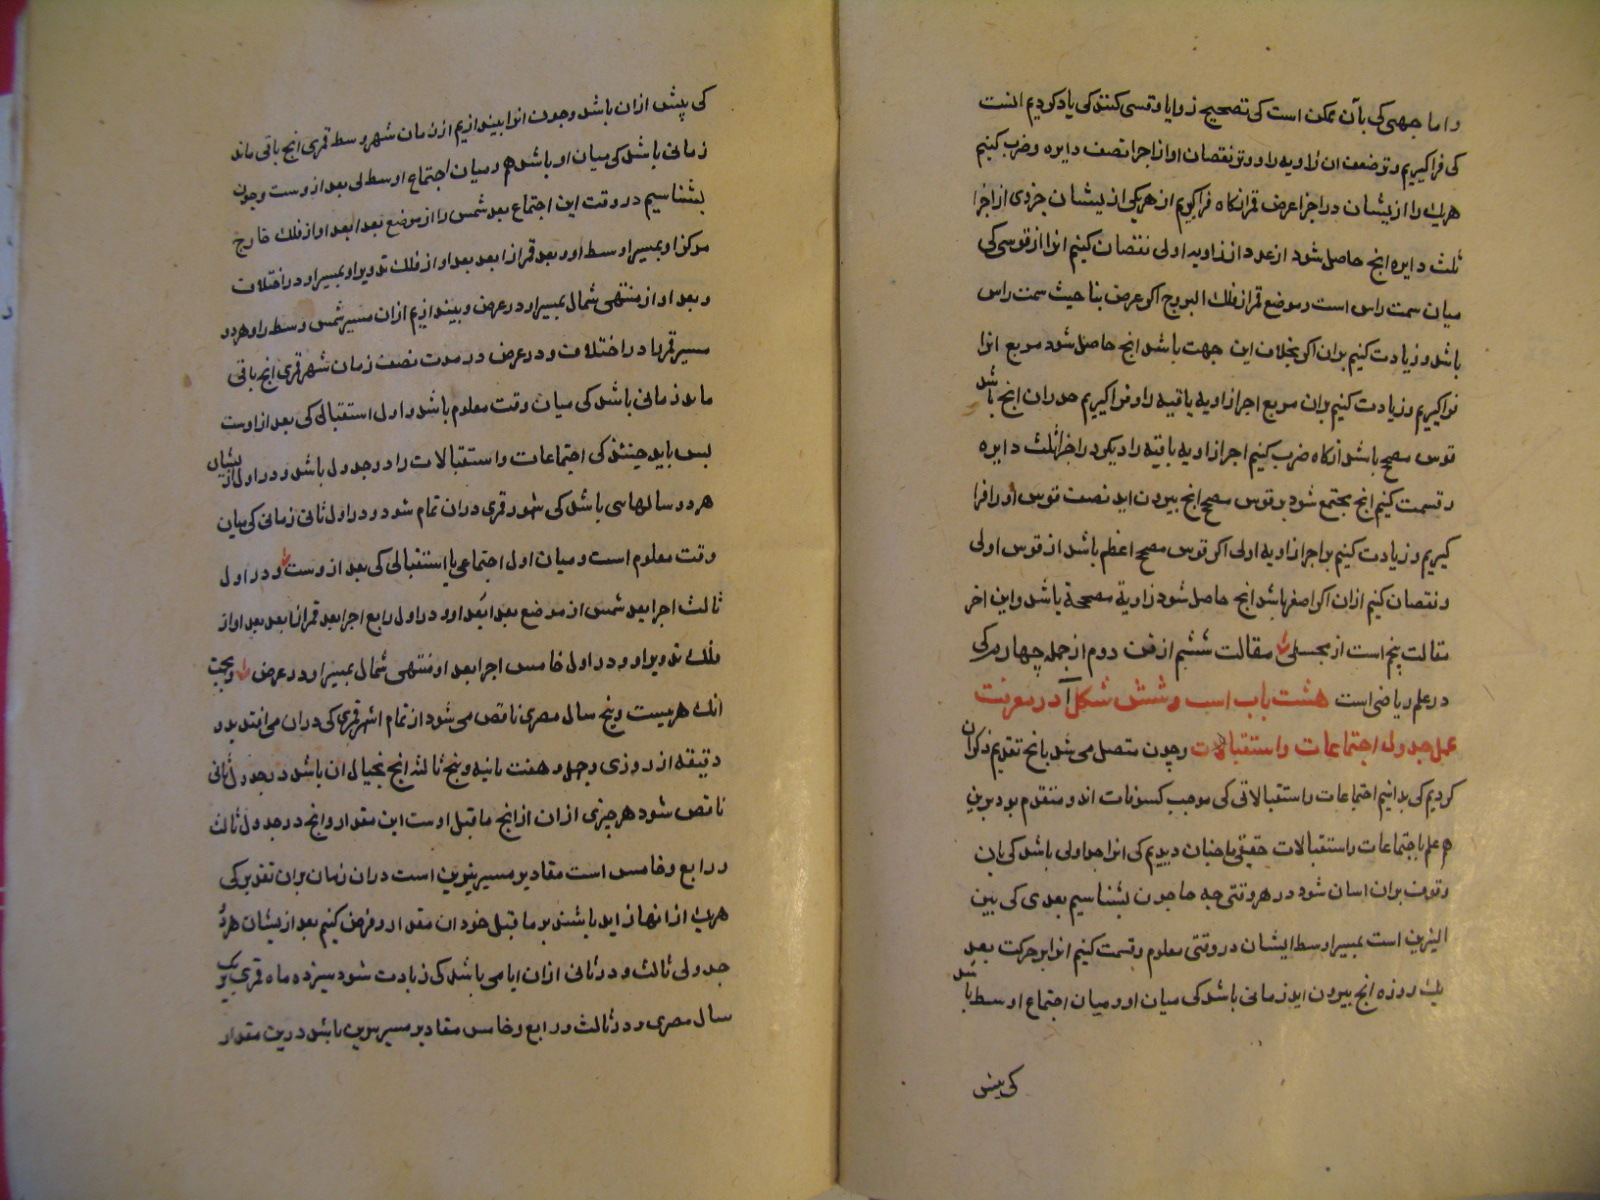 و اما جهتی کی بآن ممکن است کی تصحیح زوایا و قسی کنند کی یاد کردیم انست
کی فراکیریم وتر ضعف ان زاویه را و وتر نقصان او از اجزا نصف دایره و ضرب کنیم
هریک را از یشان در اجزا عرض قمر انکاه فراکیریم از هریکی از یشان جزوی از اجزا
ثلث دایره انج حاصل شود از عدد از زاویه اولی نقصان کنیم انرا از قوسی کی
میان سمت راس است و موضع قمر از فلک البروج اکر عرض بناحیث سمت راس
باشد و زیادت کنیم بران اکر بخلاف این جهت باشد انج حاصل شود مربع انرا
فراکیریم و زیادت کنیم بران مربع اجزا زاویه باقیه را و فراکیریم جدران انج باشد
قوس مصحح باشد انکاه ضرب کنیم اجزا زاویه باقیه را دیکر در اجزا ثلث دایره
و قسمت کنیم انج مجتمع شود بر قوس مصحح انج بیرون اید نصف قوس او را فرا
کیریم و زیادت کنیم بر اجزا زاویه اولی اکر قوس مصحح اعظم باشد از قوس اولی
و نقصان کنیم ازان اکر اصغر باشد انج حاصل شود زاویة مصححة باشد و این اخر
مقالت پنجم است از مجسطی مقالت ششم از فن دوم از جمله چهارم کی
در علم ریاضی است هشت باب است و شش شکل آ در معرفت
عمل جدول اجتماعات و استقبالات و چون متصل می شد بانج تقدیم ذکر ان
کردیم کی بدانیم اجتماعات و استقبالاتی کی موجب کسوفات اند و متقدم بود برین
هم علم باجتماعات و استقبالات حقیقی ما چنان دیدیم کی انرا جداولی باشد کی بان
وقوف بران اسان شود در هر وقتی چه ما چون بشناسیم بعدی کی بین
النیرین است بمسیر اوسط ایشان در وقتی معلوم و قسمت کنیم انرا بر حرکت بعد
یک روزه انج بیرون اید زمانی باشد کی میان او و میان اجتماع اوسط باشد
کی پیش
کی پیش ازان باشد و چون انرا بیندازیم از زمان شهر وسط قمری انج باقی ماند
زمانی باشد کی میان او باشد هم و میان اجتماع اوسطی بعد از وست و چون
بشناسیم در وقت این اجتماع بعد شمس را از موضع بعد ابعد او از فلک خارج
مرکز او بمسیر اوسط او و بعد قمر از ابعد بعد او از فلک تدویر او بمسیر او در اختلاف
و بعد او از منتهی شمال بمسیر او در عرض و بیندازیم ازان مسیر شمس وسط را و هردو
مسیر قمر را در اختلاف و در عرض در مدت نصف زمان شهر قمری انج باقی
ماند زمانی باشد کی میان وقت معلوم باشد و اول استقبالی کی بعد از اوست
بس باید حینئذ کی اجتماعات و استقبالات را دو جدول باشد و در اول از یشان
هردو سالهاسی باشد کی شهور قمری دران تمام شود و در اول ثانی زمانی کی میان
وقت معلوم است و میان اول اجتماعی یا استقبالی کی بعد از وست و در اول
ثالث اجزا بعد شمس از موضع بعد ابعد او و در اول رابع اجزا بعد قمر از ابعد بعد او از
فلک تدویر او و در اول خامس اجزا بعد او منتهی شمال بمسیر او در عرض را و بجهت
انک هر بیست و پنج سال مصری ناقص می شود از تمام اشهر قمری کی دران می افتد بدو
دقیقه از روزی و چهل و هفت ثانیه و پنج ثالثه انج بحیال ان باشد در جدول ثانی
ناقص شود هر چیزی ازان از انج ما قبل اوست این مقدار و انج در جدول ثالث
و رابع و خامس است مقادیر مسیر نیرین است دران زمان بران تقدیر کی
هریک از انها زاید باشند بر ما قبل خود ان مقدار و فرض کنیم بعد از یشان هردو
جدولی ثالث و در ثانی ازان ایامی باشد کی زیادت شود سیزده ماه قمری بر یک
سال مصری و در ثالث و رابع و خامس مقادیر مسیر نیرین باشد درین مقدار